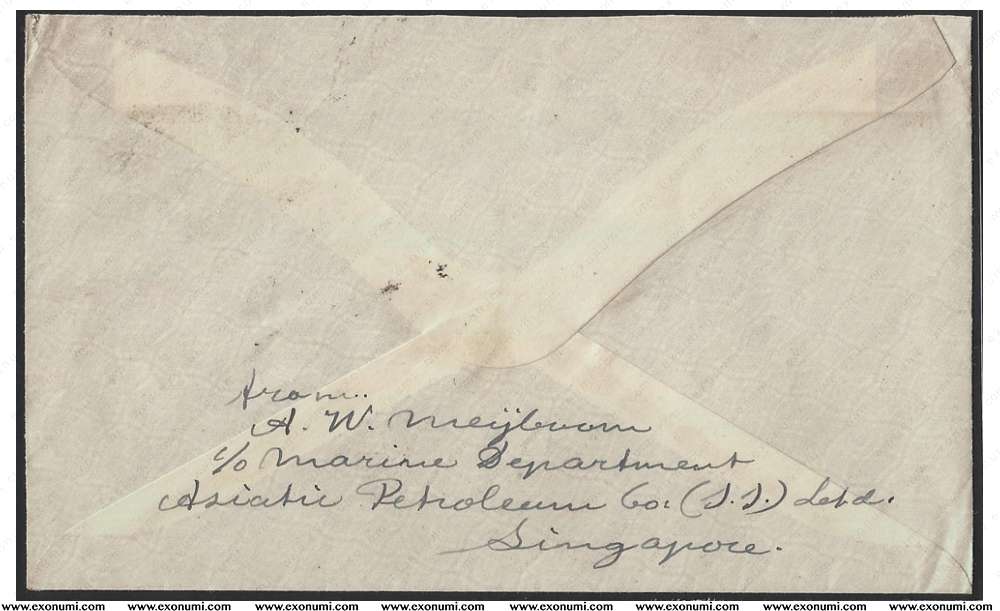 from..
A. W. Meijboom
c/o Marine Department
Asiatic Petroleum Co. (S.S.) Ltd.
Singapore.
www.exonumi.com www.exonumi.com www.exonumi.com www.exonumi.com www.exonumi.com www.exonumi.com www.exonumi.com www.exonumi.com